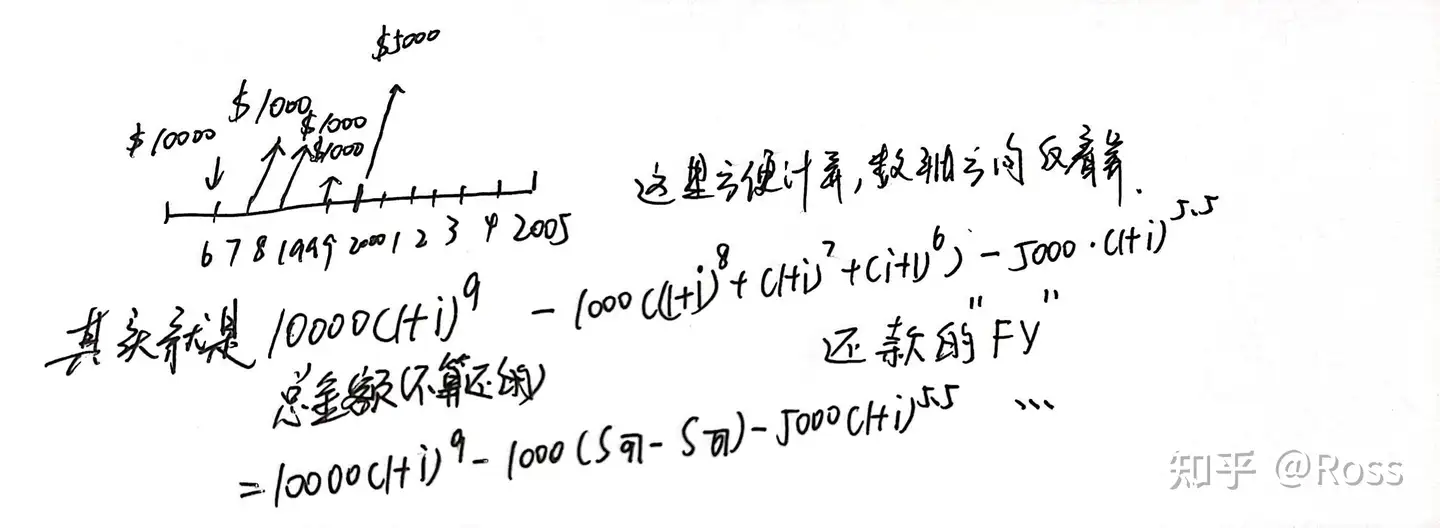 $5000
$10000 $1000 $1000
$1000
6 7 8 1999 2000 1 2 3 4 2005
这里方便计算,数轴方向反着算.
其实就是 10000(1+i)^9 - 1000((1+i)^8 + (1+i)^7 + (i+1)^6) - 5000·(1+i)^5.5
总金额(不算还的)
还款的"FV"
=10000(1+i)^9 - 1000(S9| - S6|) - 5000(1+i)^5.5 ...
知乎 @Ross